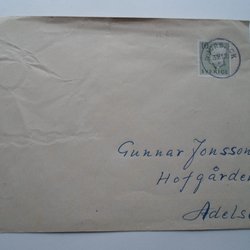 SVERIGE
Gunnar Jonsson
Hofgården
Adels